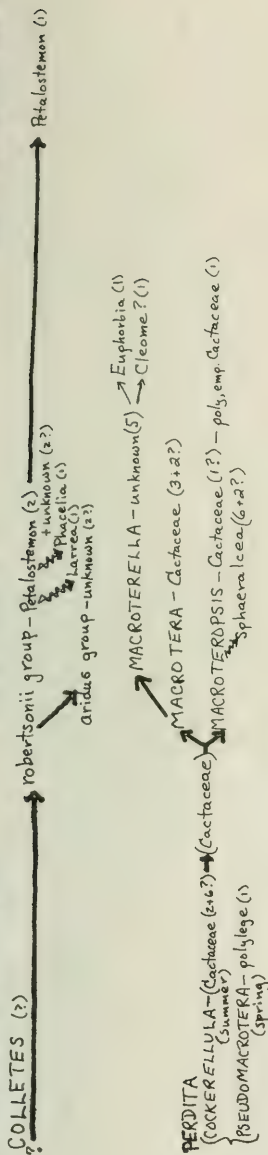 COLLETES (?)
?
robertsonii group - Petalostemon (2)
+ unknown (2?)
Phacelia (1)
Larrea (1)
Petalostemon (1)
aridus group - unknown (2?)
MACROTERELLA - unknown (5)
Euphorbia (1)
Cleome? (1)
MACROTERA - Cactaceae (3+2?)
MACROTEROPSIS - Cactaceae (1?) - poly, emp. Cactaceae (1)
Sphaeralcea (6+2?)
PERDITA
{COCKERELLULA - (Cactaceae (2+6?) (Cactaceae)
(summer)
{PSEUDOMACROTERA - polylege (1)
(spring)